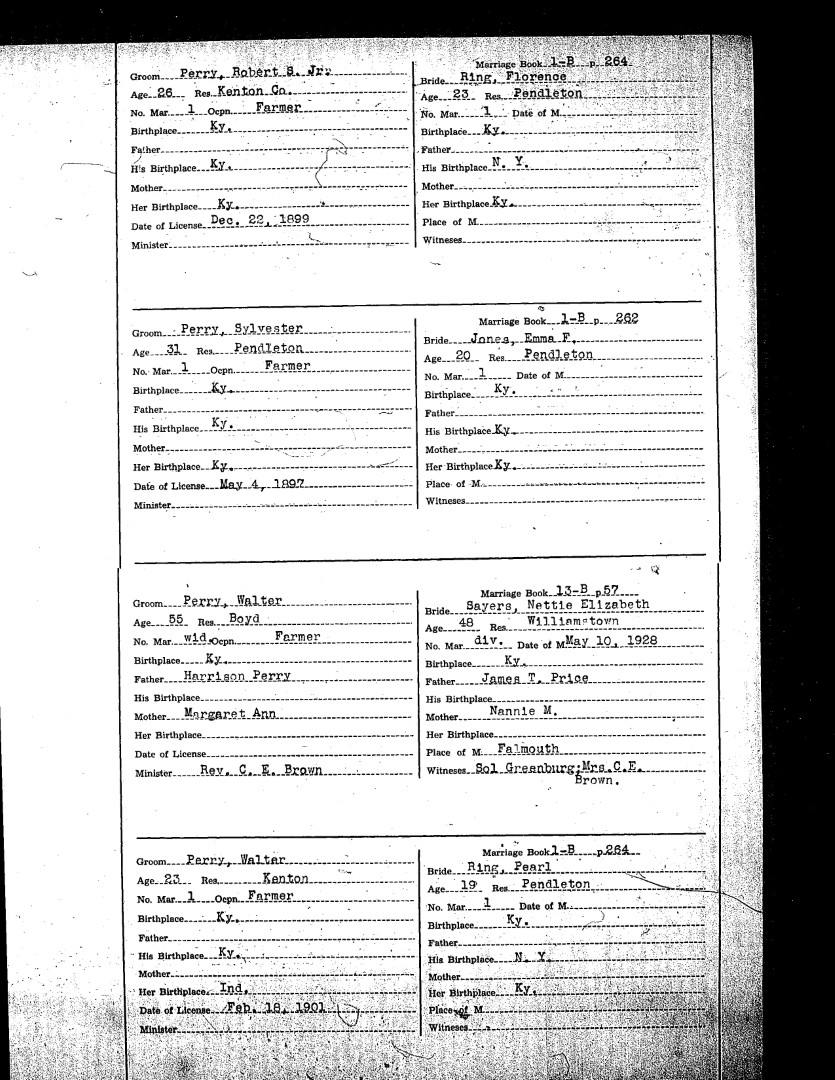 Groom Perry, Robert S. Jr.
Age 26 Res Kenton Co.
No. Mar. 1 Ocpn. Farmer
Birthplace Ky.
Father
His Birthplace Ky.
Mother
Her Birthplace Ky.
Date of License Dec. 22, 1899
Minister
Marriage Book 1-B p. 264
Bride Ring, Florence
Age 23 Res. Pendleton
No. Mar. 1 Date of M.
Birthplace Ky.
Father
His Birthplace N. Y.
Mother
Her Birthplace Ky.
Place of M.
Witnesses
Groom Perry, Sylvester
Age 31 Res. Pendleton
No. Mar. 1 Ocpn. Farmer
Birthplace Ky.
Father
His Birthplace Ky.
Mother
Her Birthplace Ky.
Date of License May 4, 1897
Minister
Marriage Book 1-B p. 262
Bride Jones, Emma F.
Age 20 Res. Pendleton
No. Mar. 1 Date of M.
Birthplace Ky.
Father
His Birthplace Ky.
Mother
Her Birthplace Ky.
Place of M.
Witnesses
Groom Perry, Walter
Age 55 Res. Boyd
No. Mar. wid. Ocpn. Farmer
Birthplace Ky.
Father Harrison Perry
His Birthplace
Mother Margaret Ann
Her Birthplace
Date of License
Minister Rev. C. E. Brown
Marriage Book 13-B p. 57
Bride Sayers, Nettie Elizabeth
Age 48 Res. Williamstown
No. Mar. div. Date of M. May 10, 1928
Birthplace Ky.
Father James T. Price
His Birthplace
Mother Nannie M.
Her Birthplace
Place of M. Falmouth
Witnesses Sol Greenburg; Mrs. C.E.
Brown.
Groom Perry, Walter
Age 23 Res. Kenton
No. Mar. 1 Ocpn. Farmer
Birthplace Ky.
Father
His Birthplace Ky.
Mother
Her Birthplace Ind.
Date of License Feb. 18, 1901
Minister
Marriage Book 1-B p. 264
Bride Ring, Pearl
Age 19 Res. Pendleton
No. Mar. 1 Date of M.
Birthplace Ky.
Father
His Birthplace N. Y.
Mother
Her Birthplace Ky.
Place of M.
Witnesses